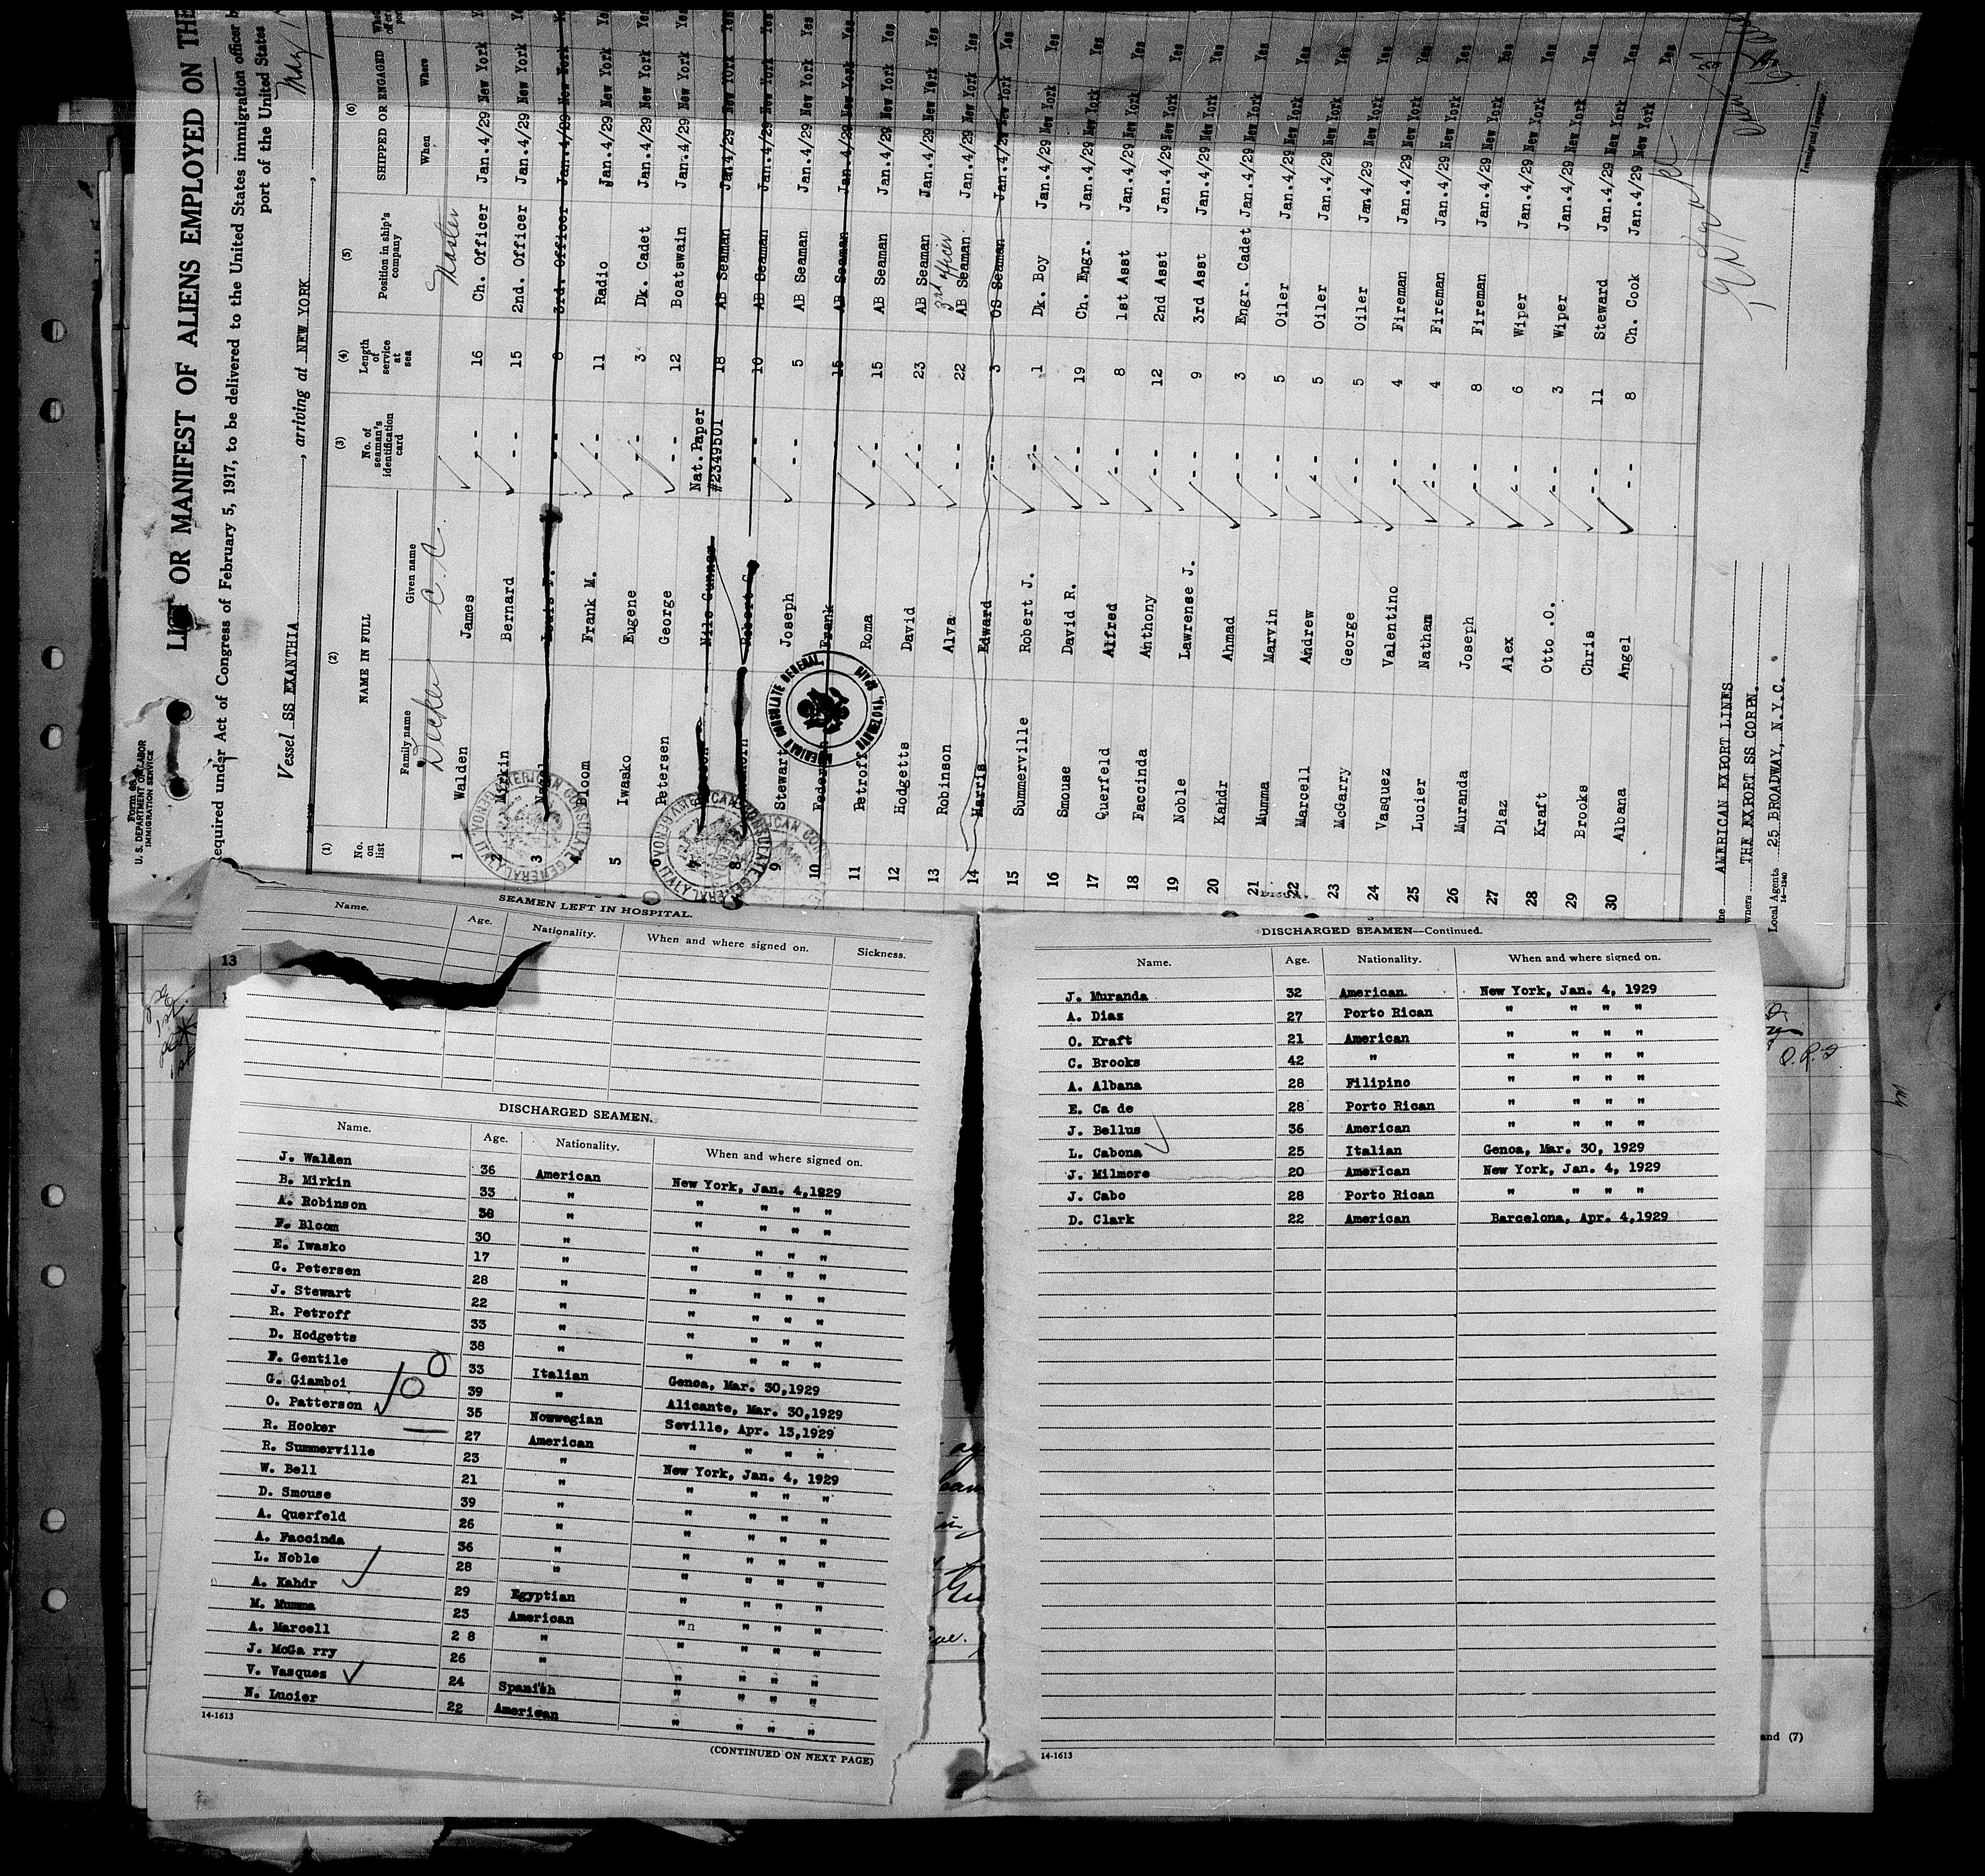 Form 68
U. S. DEPARTMENT OF LABOR
IMMIGRATION SERVICE
LIST OR MANIFEST OF ALIENS EMPLOYED ON THE
equired under Act of Congress of February 5, 1917, to be delivered to the United States immigration officer b
port of the United States
Vessel SS EXANTHIA, arriving at NEW YORK, May 1
(1) (2) (3) (4) (5) (6)
No. on list NAME IN FULL No. of seaman's identification card Length of service at sea Position in ship's company SHIPPED OR ENGAGED
Family name Given name When Where
Decker C. C. Master
1 Walden James - - 16 Ch. Officer Jan.4/29 New York Yes
2 Mirkin Bernard - - 15 2nd. Officer Jan.4/29 New York Yes
3 Louis F. - - 8 3rd. Officer Jan.4/29 New York Yes
4 Bloom Frank M. - - 11 Radio Jan.4/29 New York Yes
5 Iwasko Eugene - - 3 Dk. Cadet Jan.4/29 New York Yes
6 Petersen George - - 12 Boatswain Jan.4/29 New York Yes
7 Nils Gunnar Nat. Paper #2349501 18 AB Seaman Jan.4/29 New York Yes
8 Robert C. - - 10 AB Seaman Jan.4/29 New York Yes
9 Stewart Joseph - - 5 AB Seaman Jan.4/29 New York Yes
10 Frank - 15 AB Seaman Jan.4/29 New York Yes
11 Petroff Roma - - 15 AB Seaman Jan.4/29 New York Yes
12 Hodgetts David - - 23 AB Seaman Jan.4/29 New York Yes
13 Robinson Alva - - 22 3rd officer AB Seaman Jan.4/29 New York Yes
14 Harris Edward - - 3 OS Seaman Jan.4/29 New York Yes
15 Summerville Robert J. - - 1 Dk. Boy Jan.4/29 New York Yes
16 Smouse David R. - - 19 Ch. Engr. Jan.4/29 New York Yes
17 Querfeld Alfred - - 8 1st Asst Jan.4/29 New York Yes
18 Faccinda Anthony - - 12 2nd Asst Jan.4/29 New York Yes
19 Noble Lawrense J. - - 9 3rd Asst Jan.4/29 New York Yes
20 Kahdr Ahmad - - 3 Engr. Cadet Jan.4/29 New York Yes
21 Mumma Marvin - - 5 Oiler Jan.4/29 New York Yes
22 Marcell Andrew - - 5 Oiler Jan.4/29 New York Yes
23 McGarry George - - 5 Oiler Jan.4/29 New York Yes
24 Vasquez Valentino - - 4 Fireman Jan.4/29 New York Yes
25 Lucier Natham - - 4 Fireman Jan.4/29 New York Yes
26 Muranda Joseph - - 8 Fireman Jan.4/29 New York Yes
27 Diaz Alex - - 6 Wiper Jan.4/29 New York Yes
28 Kraft Otto .O. - - 3 Wiper Jan.4/29 New York Yes
29 Brooks Chris - - 11 Steward Jan.4/29 New York Yes
30 Albana Angel - - 8 Ch. Cook Jan.4/29 New York Yes
AMERICAN CONSULATE GENERAL
ine AMERICAN EXPORT LINES
wners THE EXPORT SS CORPN.
Local Agents 25 BROADWAY, N.Y.C.
14-1240
Immigrant Inspector.
SEAMEN LEFT IN HOSPITAL.
Name. Age. Nationality. When and where signed on. Sickness.
13
DISCHARGED SEAMEN.
Name. Age. Nationality. When and where signed on.
J. Walden 36 American New York, Jan. 4,1929
B. Mirkin 33 " " " " "
A. Robinson 38 " " " " "
F. Bloom 30 " " " " "
E. Iwasko 17 " " " " "
G. Petersen 28 " " " " "
J. Stewart 22 " " " " "
R. Petroff 33 " " " " "
D. Hodgetts 38 " " " " "
F. Gentile 33 Italian Genoa, Mar. 30,1929
G. Giamboi 39 " Alicante, Mar. 30,1929
O. Patterson 35 Norwegian Seville, Apr. 13,1929
R. Hooker 27 American " " " "
R. Summerville 23 " New York, Jan. 4, 1929
W. Bell 21 " " " " "
D. Smouse 39 " " " " "
A. Querfeld 26 " " " " "
A. Faccinda 36 " " " " "
L. Noble 28 " " " " "
A. Kahdr 29 Egyptian " " " "
M. Mumma 23 American " " " "
A. Marcell 2 8 " " " " "
J. McGa rry 26 " " " " "
V. Vasques 24 Spanish " " " "
N. Lucier 22 American " " " "
14-1613
(CONTINUED ON NEXT PAGE)
DISCHARGED SEAMEN—Continued.
Name. Age. Nationality. When and where signed on.
J. Muranda 32 American New York, Jan. 4, 1929
A. Dias 27 Porto Rican " " " "
O. Kraft 21 American " " " "
C. Brooks 42 " " " " "
A. Albana 28 Filipino " " " "
E. Ca de 28 Porto Rican " " " "
J. Bellus 36 American " " " "
L. Cabona 25 Italian Genoa, Mar. 30, 1929
J. Milmore 20 American New York, Jan. 4, 1929
J. Cabo 28 Porto Rican " " " "
D. Clark 22 American Barcelona, Apr. 4,1929
14-1613
and (7)